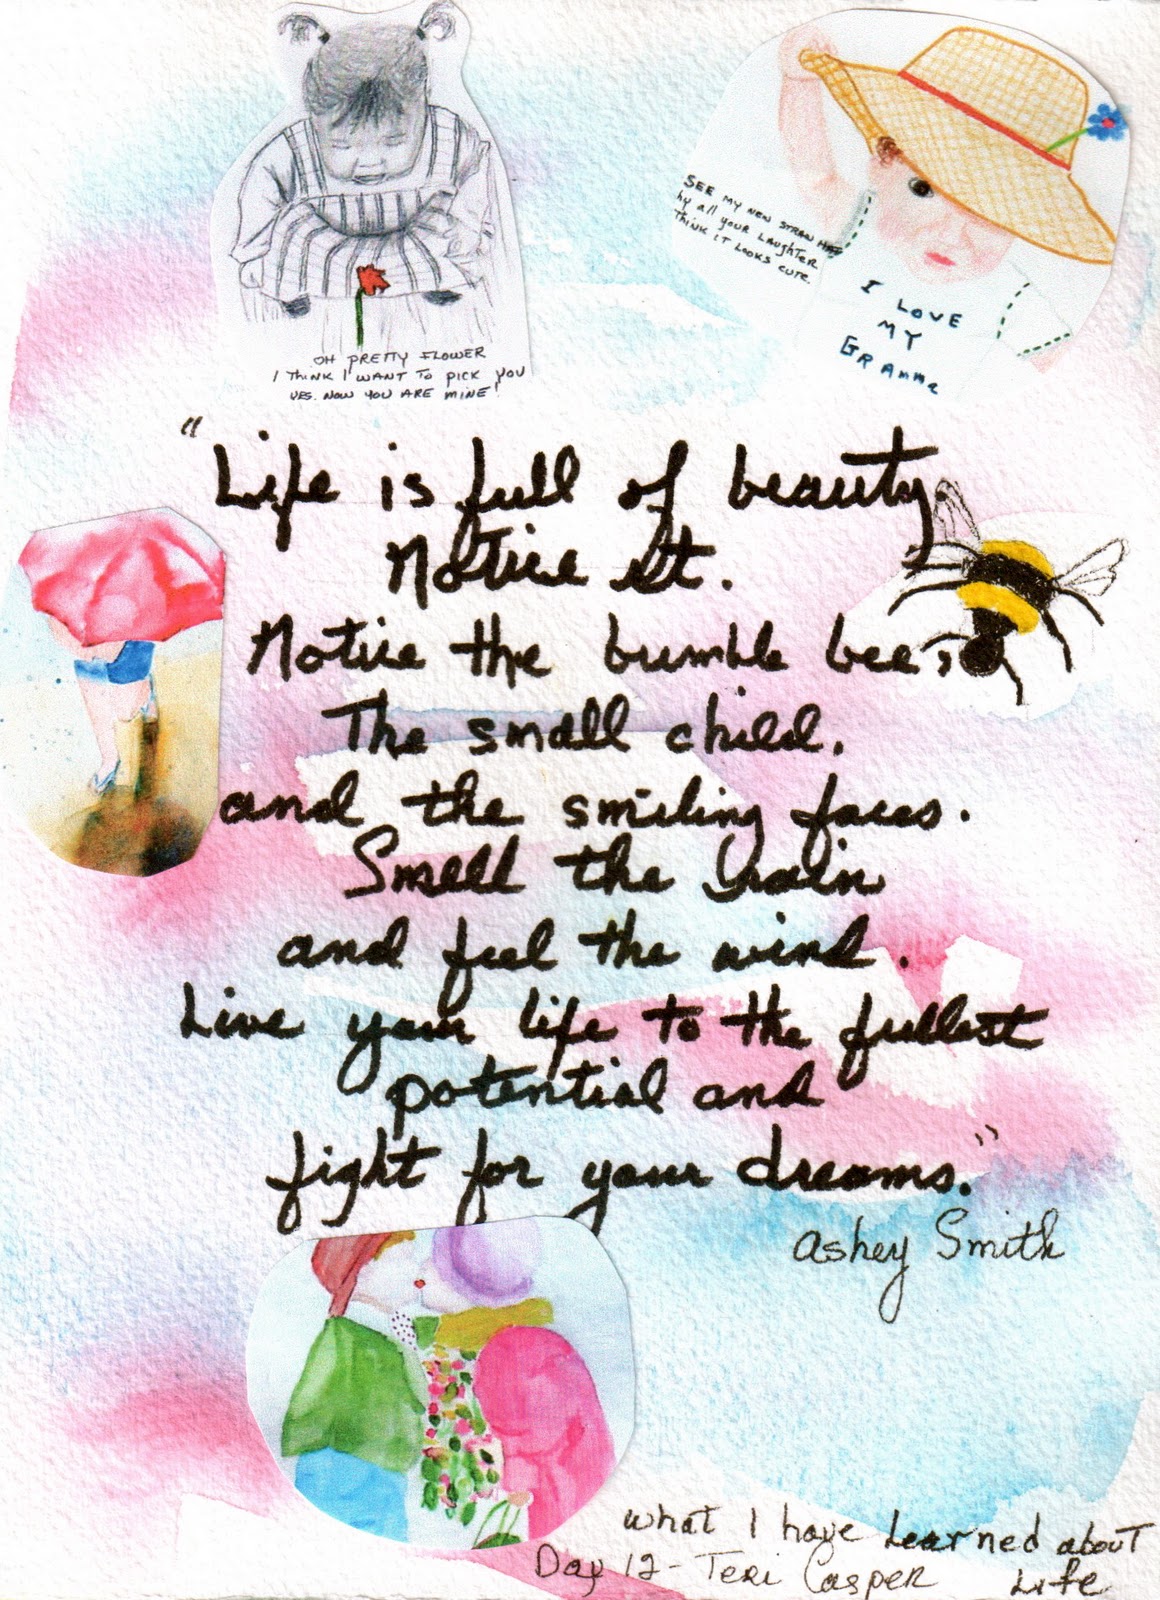 OH PRETTY FLOWER
I THINK I WANT TO PICK YOU
YES. NOW YOU ARE MINE!
SEE MY NEW STRAW HAT
by all your LAUGHTER
THINK IT LOOKS CUTE.
I LOVE
MY
GRAMMa
"Life is full of beauty.
Notice it.
Notice the bumble bee,
The small child,
and the smiling faces.
Smell the rain
and feel the wind.
Live your life to the fullest
potential and
fight for your dreams."
Ashey Smith
What I have learned about
Life
Day 12 - Teri Casper